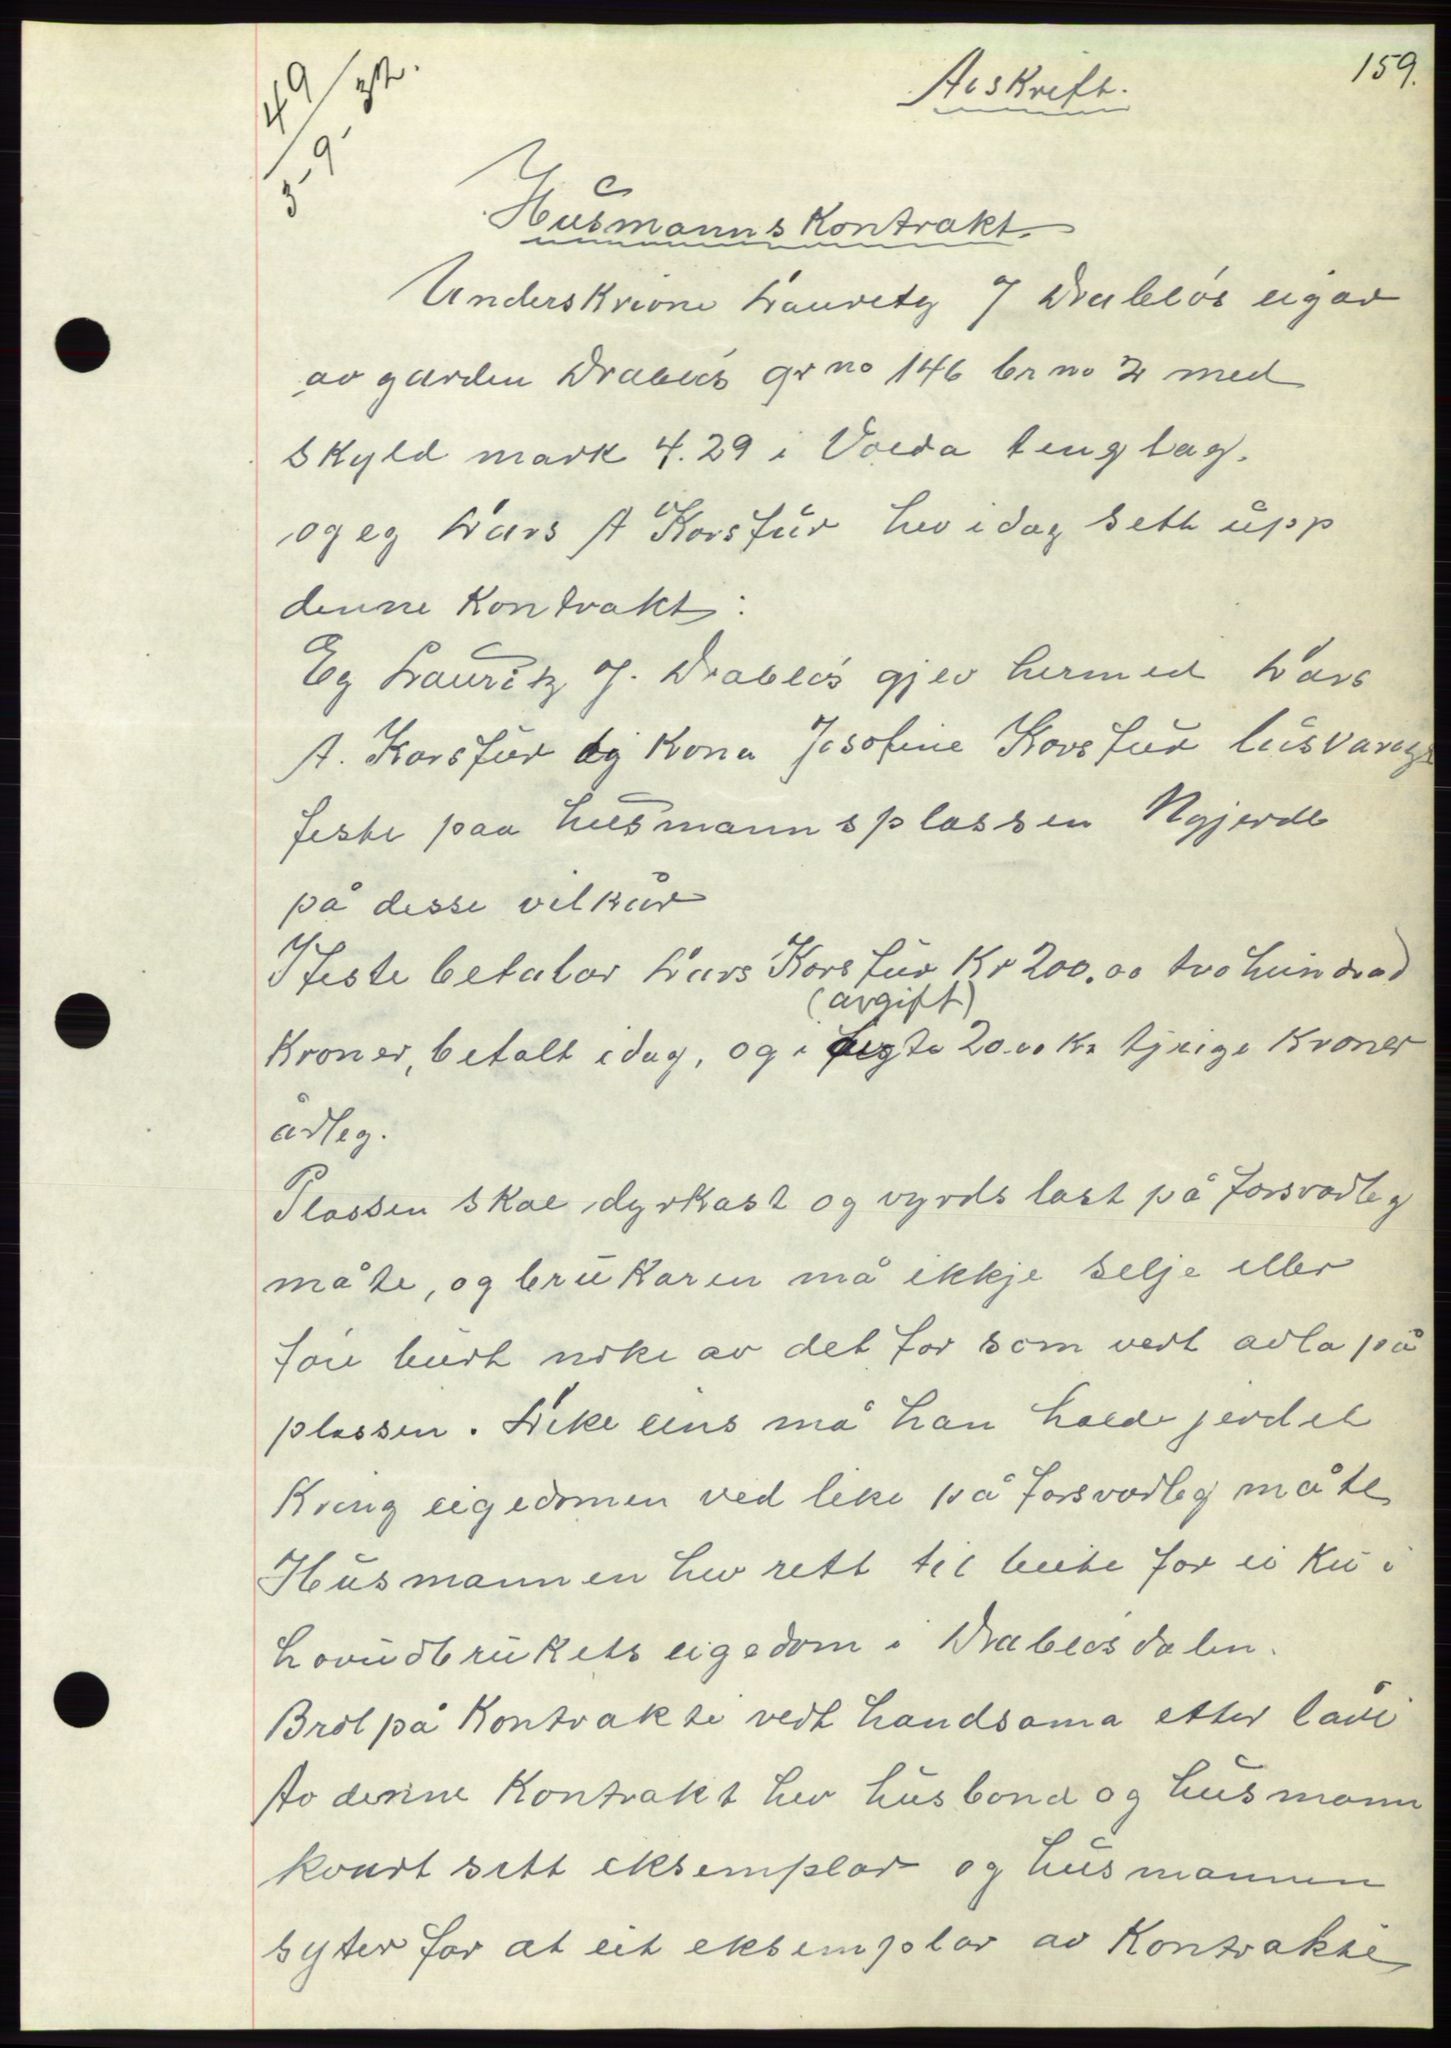 159.
Avskrift.
49/3-9-32.
Husmannskontrakt.
Underskrivne Lauritz J Drabløs eigar
av garden Drabløs gr no 146 br no 2 med
skyld mark 4.29 i Volda tinglag.
og eg Lars A Korsfur hev idag sett upp
denne kontrakt:
Eg Lauritz J. Drabløs gjev hermed Lars
A. Korsfur og kona Josefine Korsfur livsvarig
feste paa husmannsplassen Nygjerde
på desse vilkår
I feste betalar Lars Korsfur Kr 200.00 tvohundrad
(avgift)
kroner, betalt idag, og i 20.00 kr tjuge kroner
årleg.
Plassen skal dyrkast og vyrdslast på forsvarleg
måte, og brukaren må ikkje selje eller
føre burt noke av det for som vert avla på
plassen. Like eins må han halde jerdet
kring eigedomen ved like på forsvarleg måte
Husmannen hev rett til beite for ei ku i
hovudbrukets eigedom i Drabløsdalen.
Brot på kontrakte vert handsama etter lovi
Av denne kontrakt hev husbond og husmann
kvart sitt eksemplar og husmannen
syter for at eit eksemplar av kontrakte